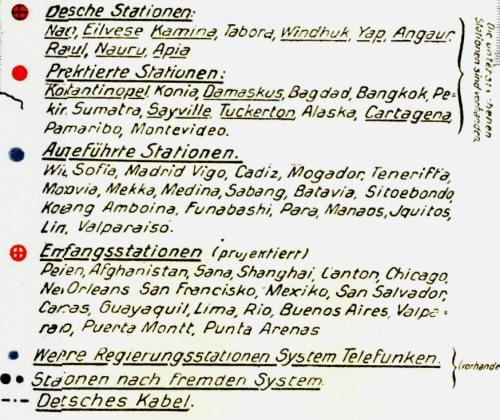 Desche Stationen:
Nau, Eilvese Kamina, Tabora, Windhuk, Yap, Angaur,
Raul, Nauru, Apia
Prektierte Stationen:
Kokantinopel, Konia, Damaskus, Bagdad, Bangkok, Pe-
kin, Sumatra, Sayville, Tuckerton, Alaska, Cartagena,
Pamaribo, Montevideo.
Augeführte Stationen.
Sofia, Madrid Vigo, Cadiz, Mogador, Teneriffa,
Mekka, Medina, Sabang, Batavia, Sitoebondo,
Amboina, Funabashi, Para, Manaos, Jquitos,
Lim, Valparaiso.
Emfangsstationen (projektiert)
Afghanistan, Sana, Shanghai, Canton, Chicago,
Orleans San Francisko, Mexiko, San Salvador,
Guayaquil, Lima, Rio, Buenos Aires, Valpa-
raio, Puerta Montt, Punta Arenas
Regierungsstationen System Telefunken.
Staionen nach fremden System.
Detsches Kabel.
Stationen sind vorhanden
(vorhande